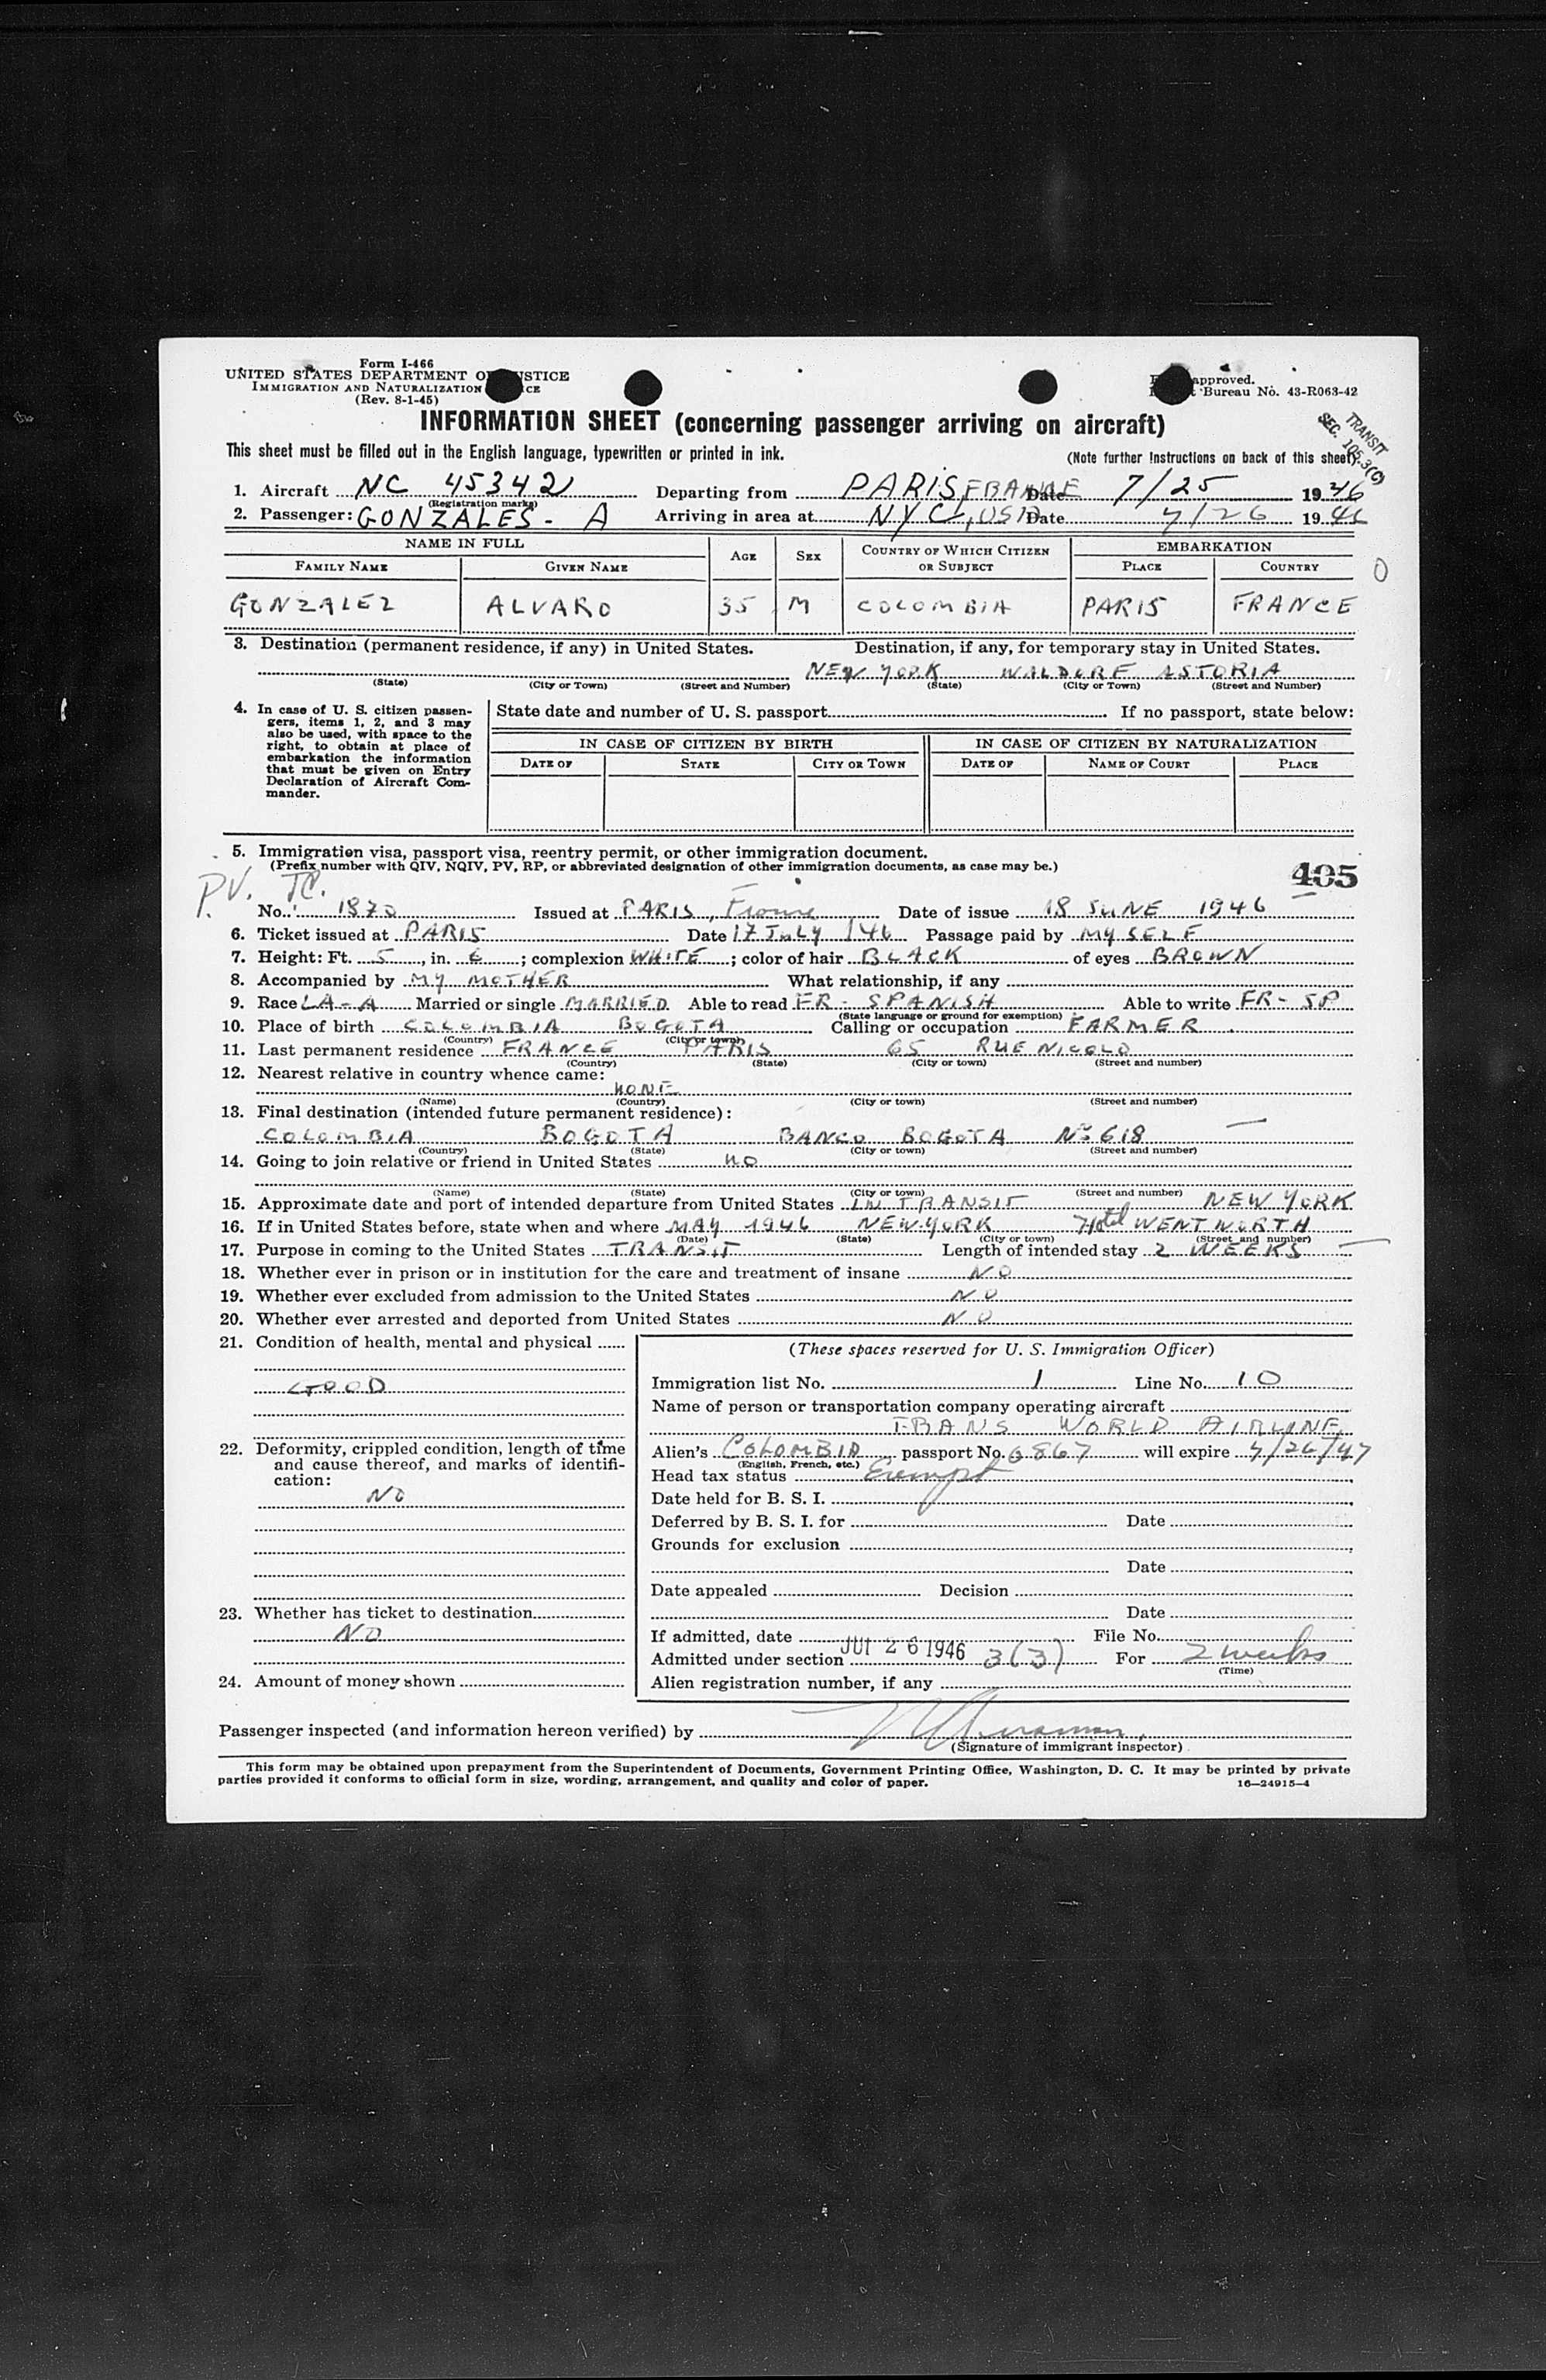 Form I-466
UNITED STATES DEPARTMENT OF JUSTICE
IMMIGRATION AND NATURALIZATION SERVICE
(Rev. 8-1-45)
approved.
Bureau No. 43-R063-42
INFORMATION SHEET (concerning passenger arriving on aircraft)
TRANSIT
SEC. 105.3(C)
This sheet must be filled out in the English language, typewritten or printed in ink.
(Note further instructions on back of this sheet)
1. Aircraft NC 45342 Departing from PARIS, FRANCE Date 7/25 1946
(Registration marks)
2. Passenger: GONZALES - A Arriving in area at NYC, USA Date 7/26 1946
NAME IN FULL AGE SEX COUNTRY OF WHICH CITIZEN OR SUBJECT EMBARKATION
FAMILY NAME GIVEN NAME PLACE COUNTRY
GONZALEZ ALVARO 35 M COLOMBIA PARIS FRANCE
3. Destination (permanent residence, if any) in United States. Destination, if any, for temporary stay in United States.
NEW YORK WALDORF ASTORIA
(State) (City or Town) (Street and Number) (State) (City or Town) (Street and Number)
4. In case of U. S. citizen passengers, items 1, 2, and 3 may also be used, with space to the right, to obtain at place of embarkation the information that must be given on Entry Declaration of Aircraft Commander.
State date and number of U. S. passport If no passport, state below:
IN CASE OF CITIZEN BY BIRTH IN CASE OF CITIZEN BY NATURALIZATION
DATE OF STATE CITY OR TOWN DATE OF NAME OF COURT PLACE
5. Immigration visa, passport visa, reentry permit, or other immigration document.
(Prefix number with QIV, NQIV, PV, RP, or abbreviated designation of other immigration documents, as case may be.)
405
P.V. TC.
No. 1870 Issued at PARIS, France Date of issue 18 JUNE 1946
6. Ticket issued at PARIS Date 17 JULY 146 Passage paid by MY SELF
7. Height: Ft. 5, in. 6; complexion WHITE; color of hair BLACK of eyes BROWN
8. Accompanied by MY MOTHER What relationship, if any
9. Race LA-A Married or single MARRIED Able to read FR - SPANISH Able to write FR - SP
(State language or ground for exemption)
10. Place of birth COLOMBIA BOGOTA Calling or occupation FARMER
(Country) (City or town)
11. Last permanent residence FRANCE PARIS 65 RUE NICOLO
(Country) (State) (City or town) (Street and number)
12. Nearest relative in country whence came:
NONE
(Name) (Country) (City or town) (Street and number)
13. Final destination (intended future permanent residence):
COLOMBIA BOGOTA BANCO BOGOTA No 618
(Country) (State) (City or town) (Street and number)
14. Going to join relative or friend in United States NO
(Name) (State) (City or town) (Street and number)
15. Approximate date and port of intended departure from United States IN TRANSIT NEW YORK
16. If in United States before, state when and where MAY 1946 NEW-YORK Hotel WENTWORTH
(Date) (State) (City or town) (Street and number)
17. Purpose in coming to the United States TRANSIT Length of intended stay 2 WEEKS
18. Whether ever in prison or in institution for the care and treatment of insane NO
19. Whether ever excluded from admission to the United States NO
20. Whether ever arrested and deported from United States NO
21. Condition of health, mental and physical
GOOD
22. Deformity, crippled condition, length of time and cause thereof, and marks of identification:
NO
23. Whether has ticket to destination
NO
24. Amount of money shown
(These spaces reserved for U. S. Immigration Officer)
Immigration list No. 1 Line No. 10
Name of person or transportation company operating aircraft
TRANS WORLD AIRLINE
Alien's COLOMBIA passport No. 6867 will expire 7/26/47
(English, French, etc.)
Head tax status Exempt
Date held for B. S. I.
Deferred by B. S. I. for Date
Grounds for exclusion
Date
Date appealed Decision
Date
If admitted, date JUL 26 1946 File No.
Admitted under section 3(3) For 2 weeks
(Time)
Alien registration number, if any
Passenger inspected (and information hereon verified) by
(Signature of immigrant inspector)
This form may be obtained upon prepayment from the Superintendent of Documents, Government Printing Office, Washington, D. C. It may be printed by private
parties provided it conforms to official form in size, wording, arrangement, and quality and color of paper.
16—24915-4